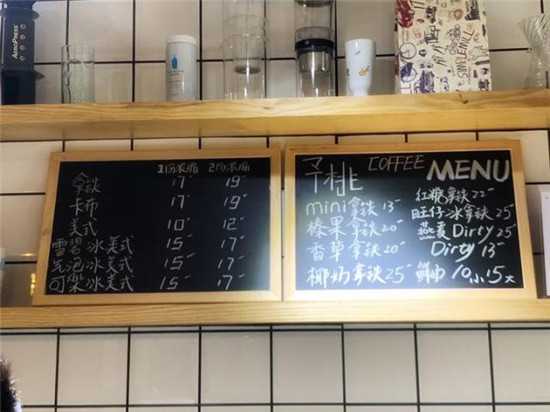 AEROPRESS
1份浓缩 2份浓缩
拿铁 17 19
卡布 17 19
美式 10 12
雪碧冰美式 15 17
气泡冰美式 15 17
可乐冰美式 15 17
桃 COFFEE MENU
mini拿铁 13
榛果拿铁 20
香草拿铁 20
椰奶拿铁 25
红糖拿铁 22
旺仔冰拿铁 25
燕麦Dirty 25
Dirty 13
鲜 10小 15大